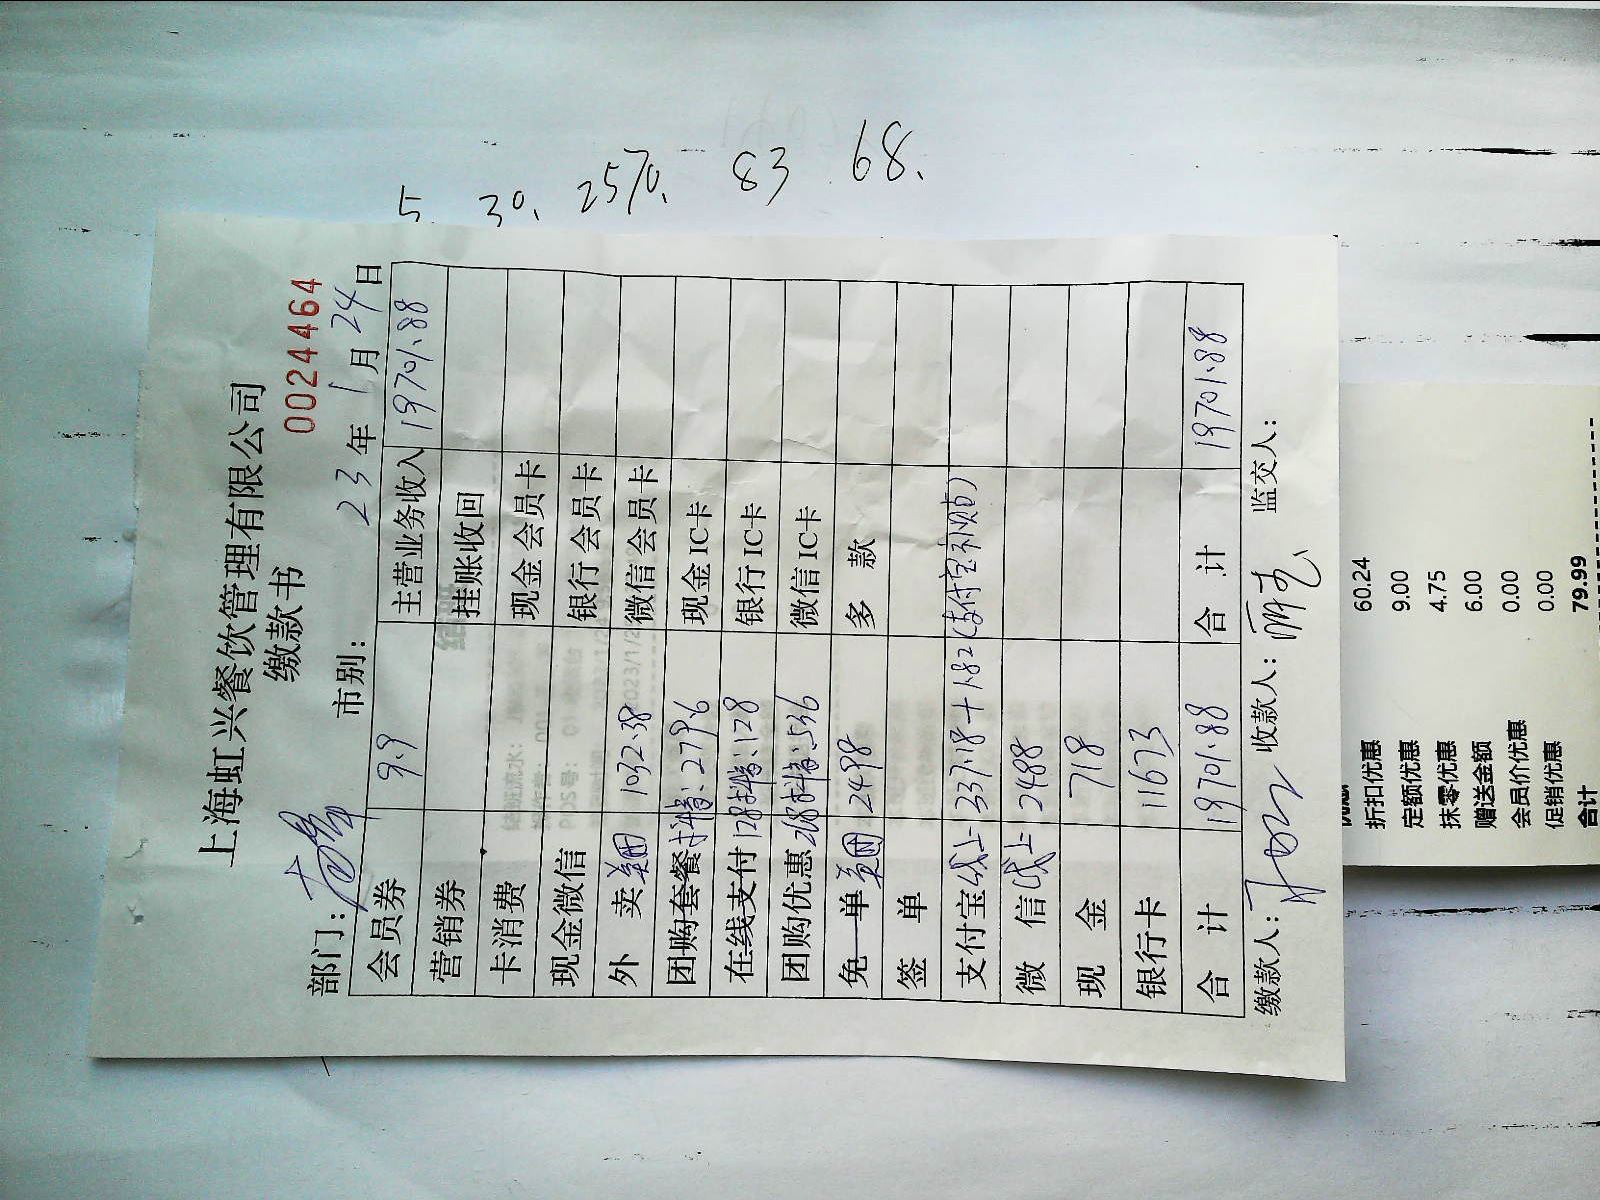 5. 30. 25%. 83 68.
上海虹兴餐饮管理有限公司
缴款书
00244464
部门: 市别: 23年1月24日
会员券 9.9 主营业务收入 19701.88
营销券 挂账收回
卡消费 现金会员卡
现金微信 银行会员卡
外卖 美团 1032.38 微信会员卡
团购套餐 抖音:279.6 现金IC卡
在线支付 128抖音:128 银行IC卡
团购优惠 268抖音:536 微信IC卡
免单 美团 2498 多款
签单
支付宝 线上 337.18+1.82(支付宝补贴)
微信 线上 2488
现金 718
银行卡 11673
合计 19701.88 合计 19701.88
缴款人: 收款人: 监交人:
折扣优惠 60.24
定额优惠 9.00
抹零优惠 4.75
赠送金额 6.00
会员价优惠 0.00
促销优惠 0.00
合计 79.99